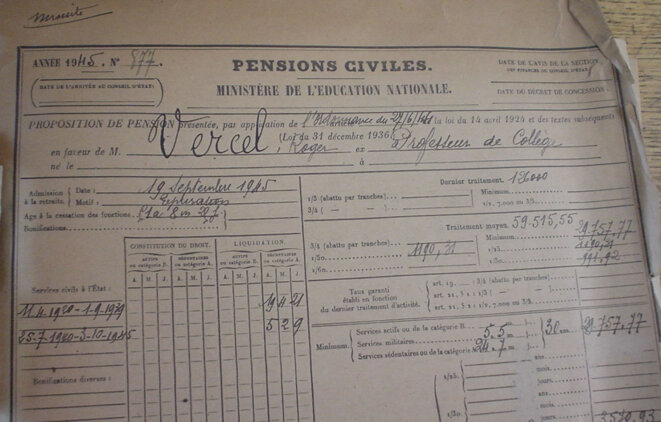 ANNÉE 1945. N° 877.
PENSIONS CIVILES.
MINISTÈRE DE L'EDUCATION NATIONALE.
DATE DE L'AVIS DE LA SECTION
DES FINANCES DU CONSEIL D'ÉTAT.
DATE DE L'ARRIVÉE AU CONSEIL D'ÉTAT.
DATE DU DÉCRET DE CONCESSION.
PROPOSITION DE PENSION présentée, par application de l'Ordonnance du la loi du 14 avril 1924 et des textes subséquents
(Loi du 31 décembre 1936)
en faveur de M. Vercel, Roger ex Professeur de Collège
né le à
Admission à la retraite. Date : 19 Septembre 1945
Motif :
Age à la cessation des fonctions.
Bonifications
Dernier traitement.
1/3 (abattu par tranches) Minimum
3/4 ( — — ) 1/2, 7.000 ou 1/3.
Traitement moyen. 59.515,55
3/4 (abattu par tranches) Minimum 29.757,77
1/50 1190,31 1/25
1/60 1/60 991,92
CONSTITUTION DU DROIT. LIQUIDATION.
ACTIFS ou catégorie B. SÉDENTAIRES ou catégorie A. ACTIFS ou catégorie B. SÉDENTAIRES ou catégorie A.
A. M. J. A. M. J. A. M. J. A. M. J.
Services civils à l'État :
11.4.1920-1.9.1939 19 4 21
25-7.1940-3-10-1945 5 2 9
Taux garanti établi en fonction du dernier traitement d'activité.
art. 19. — 3/4 (abattu par tranches)
art. 21, § 1 : 1/3 ( — )
art. 21, § 2 :
Minimum: Services actifs ou de la catégorie B. 30 ans 29.757,77
Services militaires 5.5
Services sédentaires ou de la catégorie 24.7
Bonifications diverses :
1/25
ans.
mois.
jours.
1/50
ans.
mois.
jours.